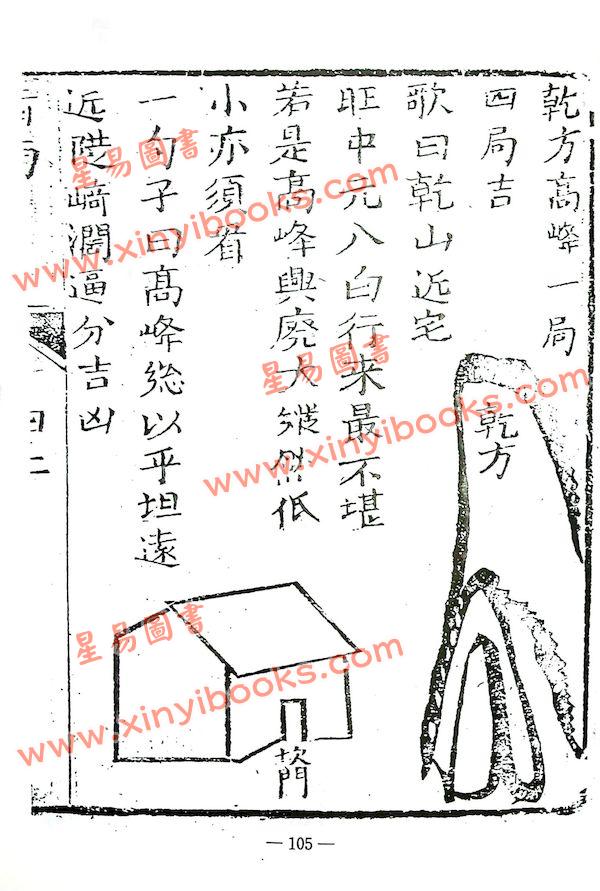 乾方高峰一局
四局吉
歌曰乾山近宅
旺中元八白行来最不堪
若是高峰興廢大縱然低
小亦須看
一勺子曰髙峰總以平坦遠
近陡﨑濶逼分吉凶
乾方
坎門
四二
星易圖書
www.xinyibooks.com
星易圖書
www.xinyibooks.com
星易圖書
www.xinyibooks.com
— 105 —